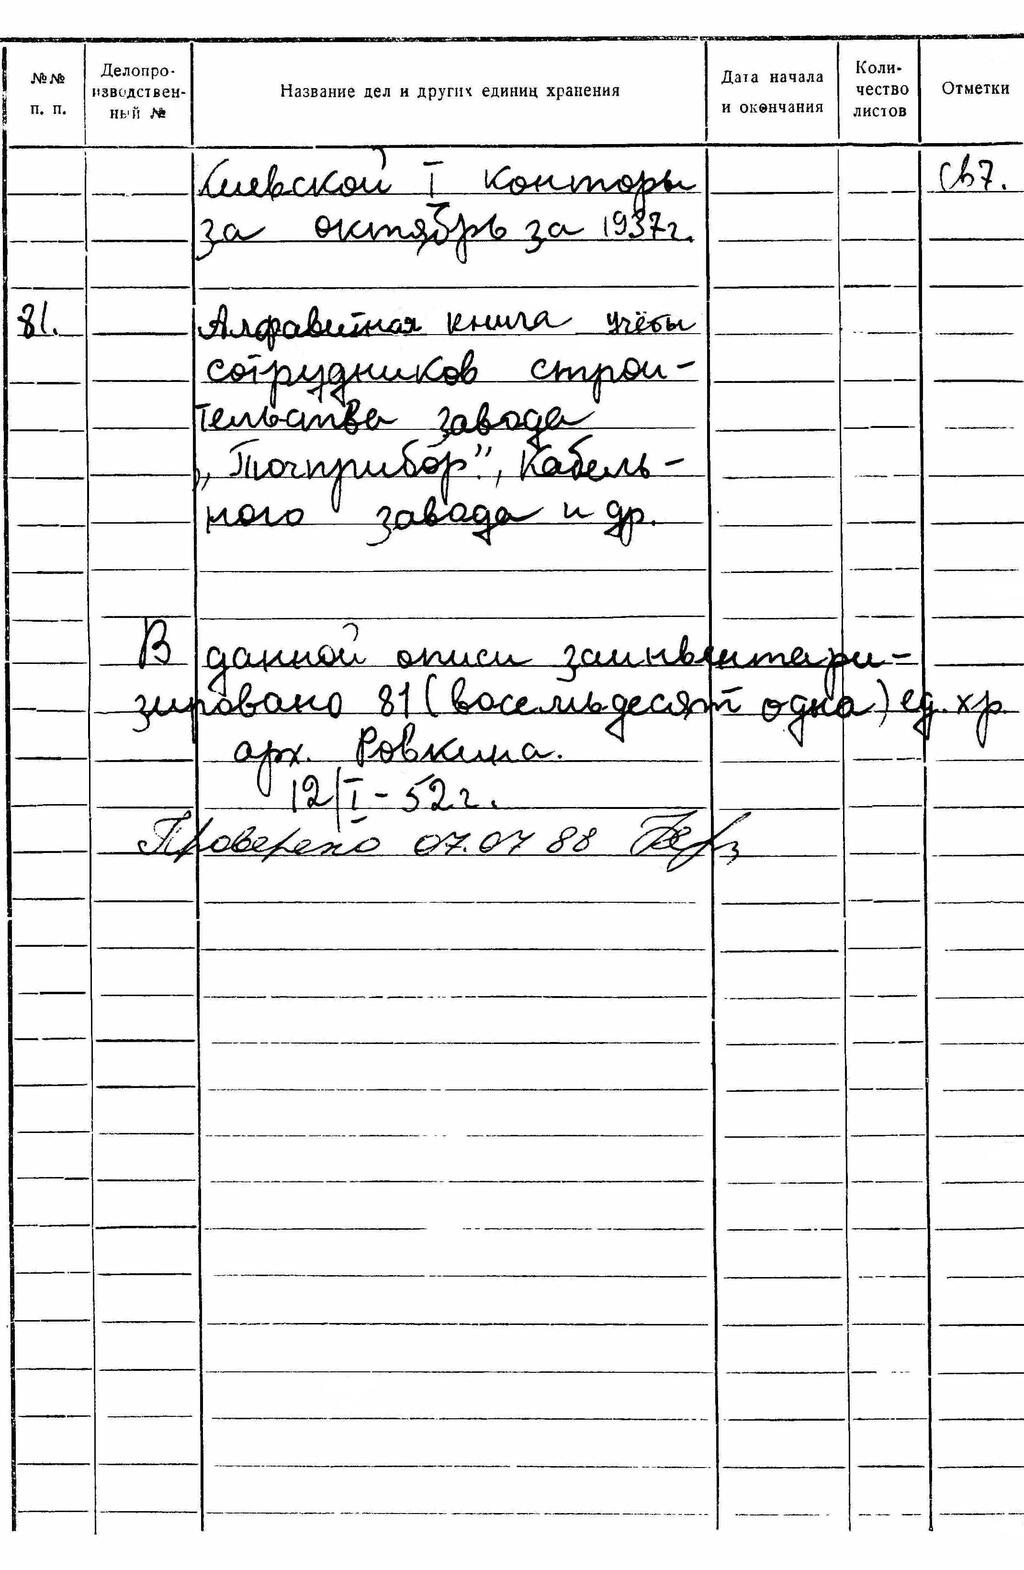 №№ п. п.
Делопро-
изводствен-
ный №
Название дел и других единиц хранения
Дата начала
и окончания
Коли-
чество
листов
Отметки
Киевской I конторы
за октябрь за 1937г.
св7.
81.
Алфавитная книга учёты
сотрудников строи-
тельства завода
„Точприбор", Кабель-
ного завода и др.
В данной описи заинвентари-
зировано 81 (восемьдесят одна) ед. хр.
арх. Ровкина.
12/I-52г.
Проверено 07.07 88